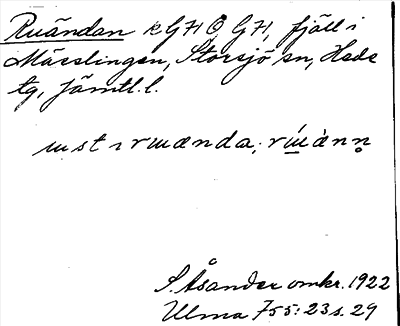 Ruändan k G71 Ö, G71, fjäll i
Mässlingen, Storsjö sn, Hede
tg, Jämtl. l.
ɯst ı rɯænda; rɯ́ànn̥
S. Åsander omkr. 1922
Ulma 755:23 s. 29